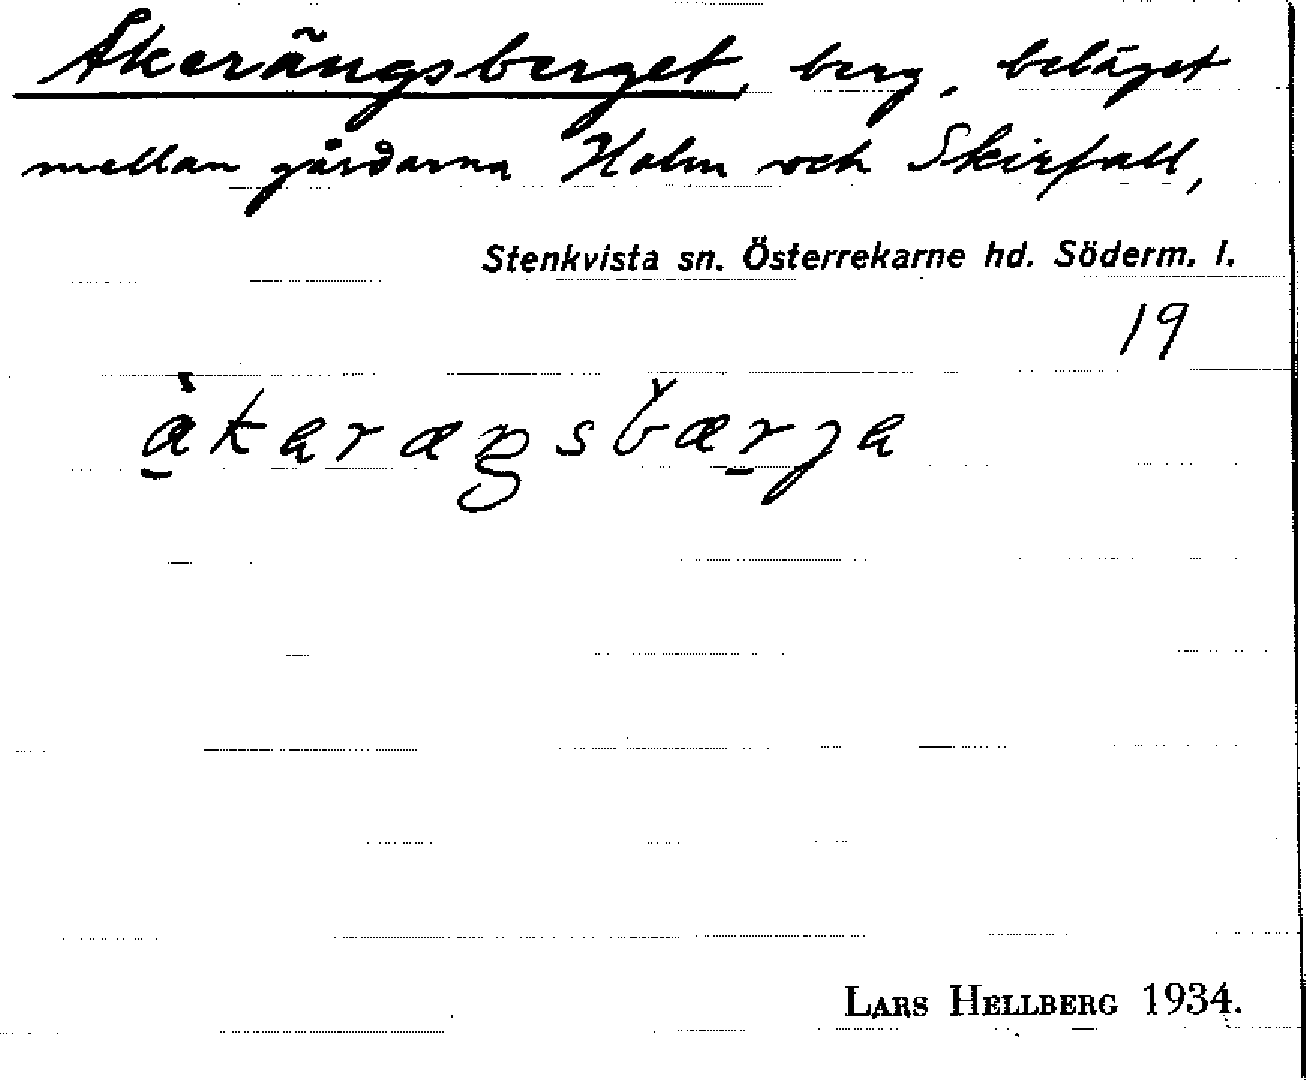 Åkerängsberget, berg, beläget
mellan gårdarna Holm och Skirfall,
Stenkvista sn. Österrekarne hd. Söderm. l.
19
LARS HELLBERG 1934.